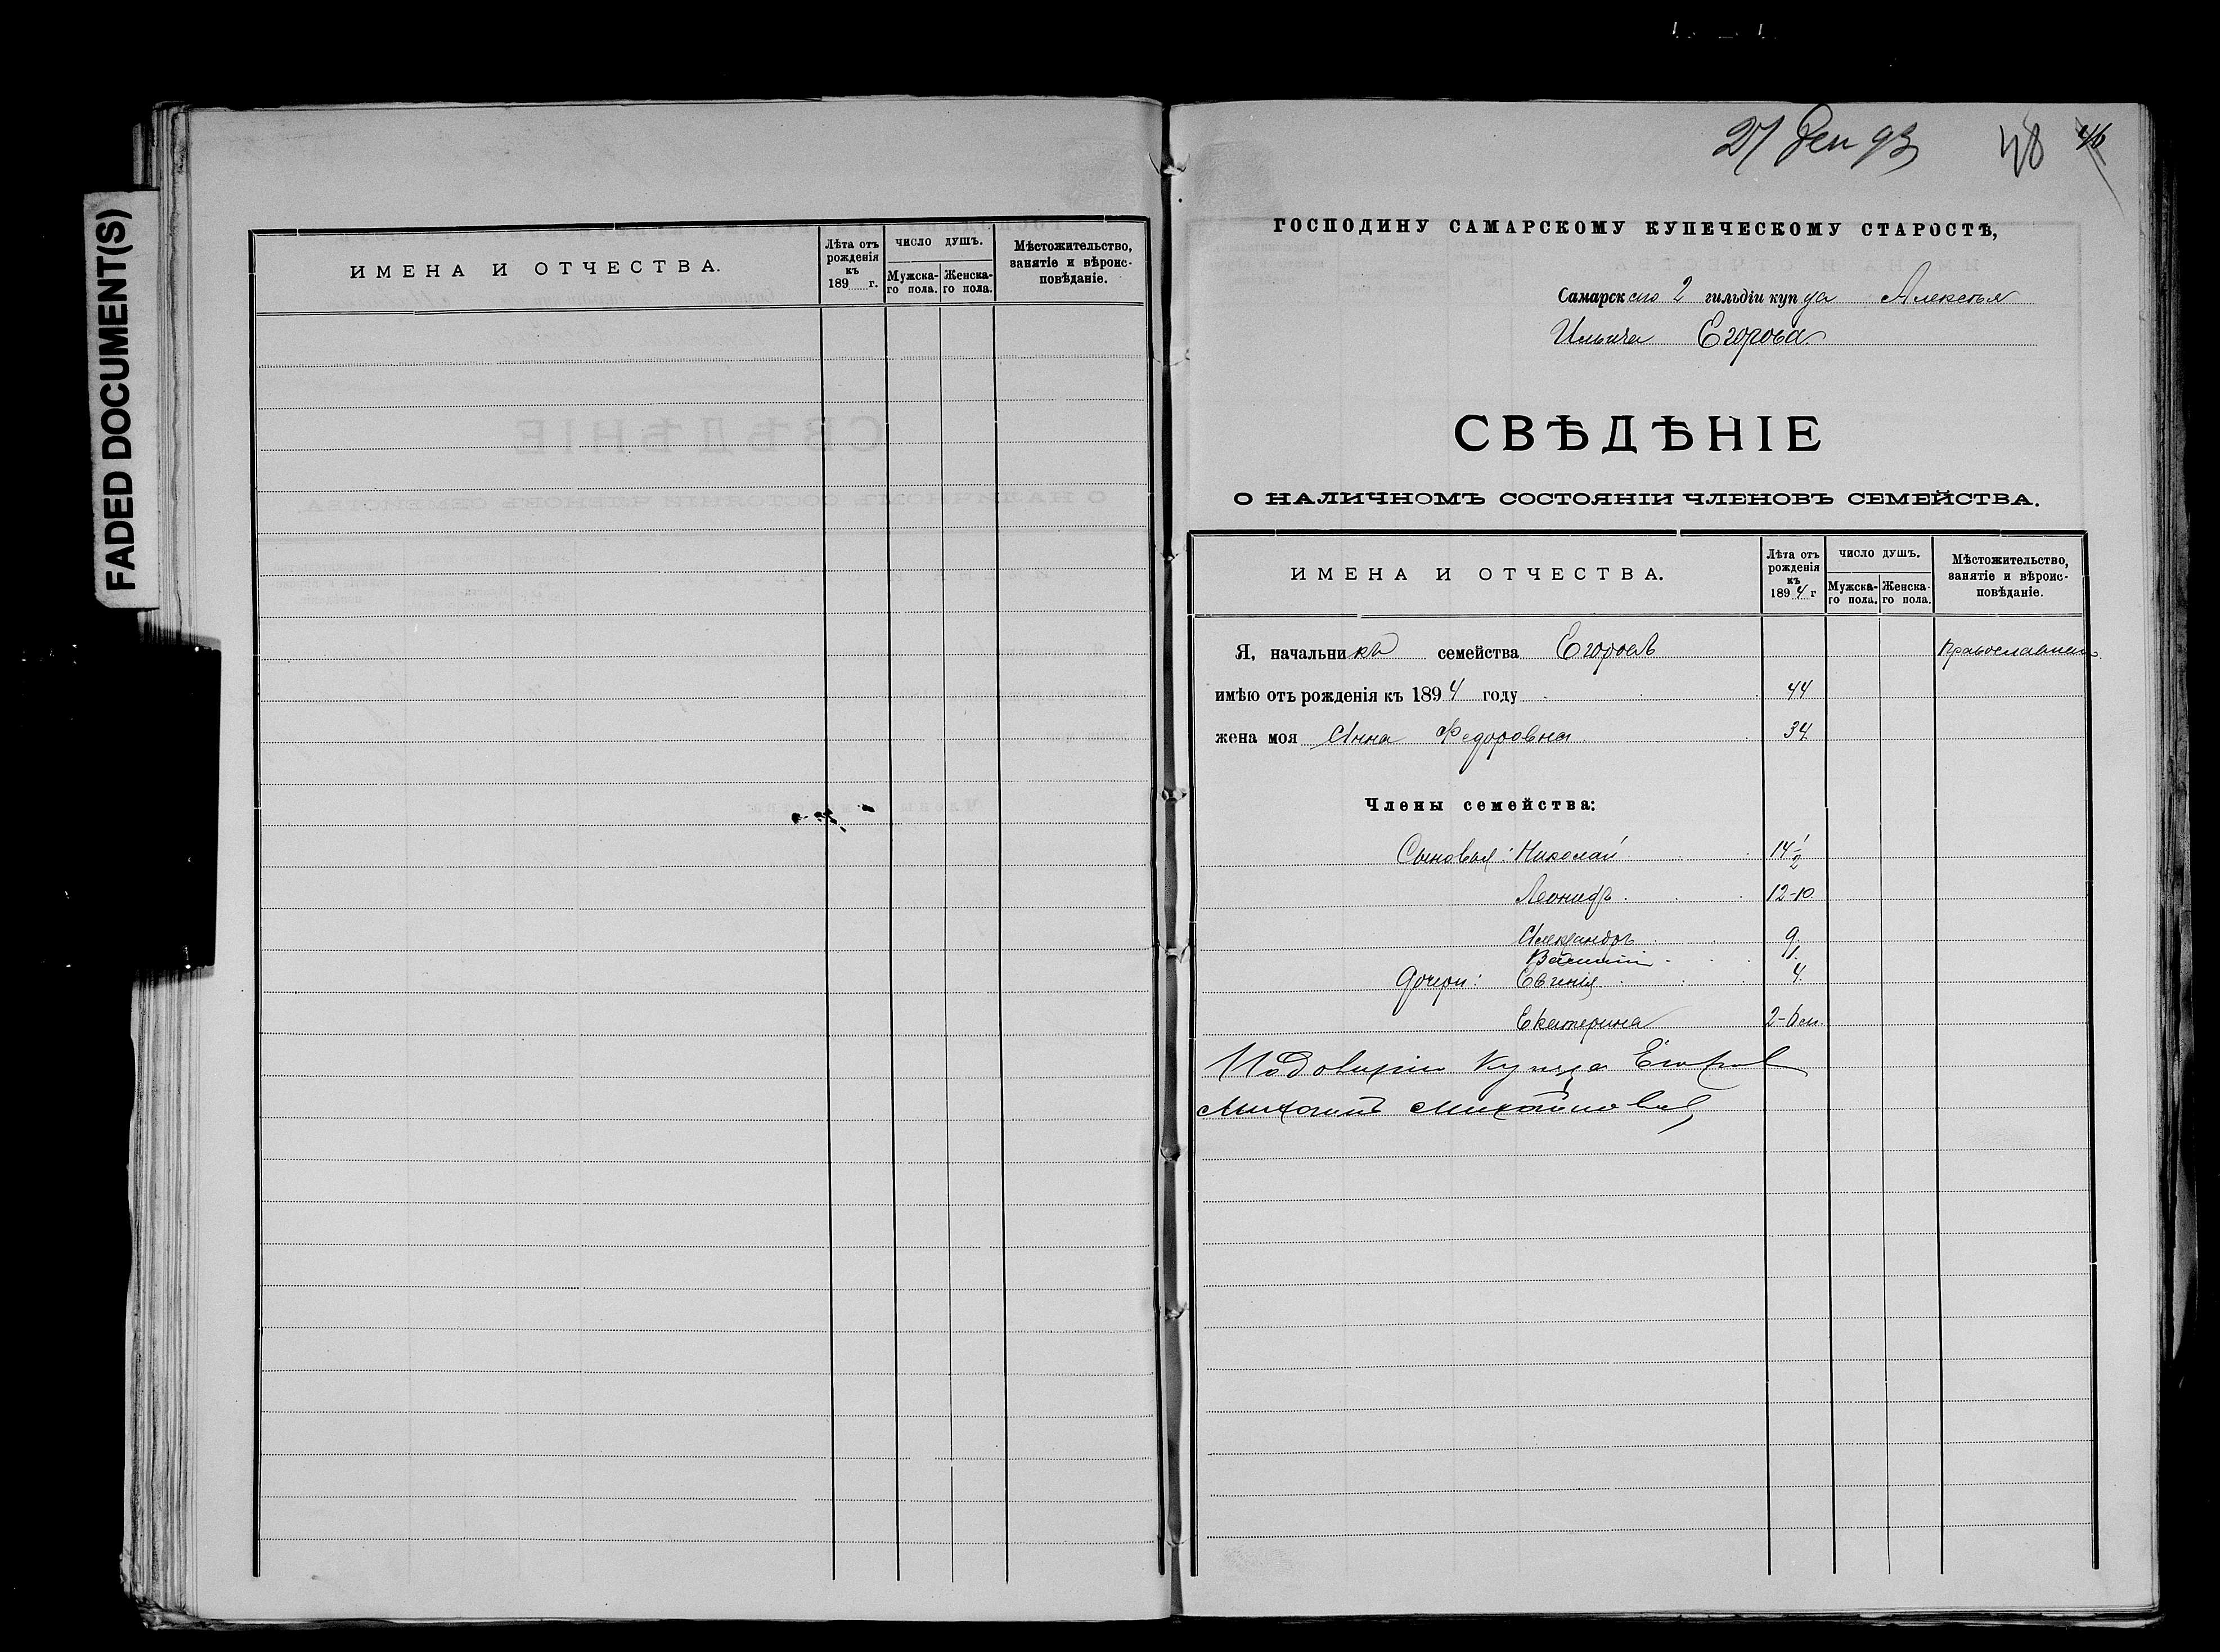 FADED DOCUMENT(S)
ИМЕНА И ОТЧЕСТВА.
Лѣта отъ рожденія къ 189 г.
ЧИСЛО ДУШЪ.
Мужска-го пола.
Женска-го пола.
Мѣстожительство, занятіе и вѣроис-повѣданіе.
27 Дек 93
48 46
ГОСПОДИНУ САМАРСКОМУ КУПЕЧЕСКОМУ СТАРОСТѢ,
Самарскаго 2 гильдіи купца Алексѣя
Ильича Егорова
СВѢДѢНІЕ
О НАЛИЧНОМЪ СОСТОЯНІИ ЧЛЕНОВЪ СЕМЕЙСТВА.
ИМЕНА И ОТЧЕСТВА.
Лѣта отъ рожденія къ 1894 г
ЧИСЛО ДУШЪ.
Мужска-го пола.
Женска-го пола.
Мѣстожительство, занятіе и вѣроис-повѣданіе.
Я, начальникъ семейства Егоровъ
имѣю отъ рожденія къ 1894 году 44
жена моя Анна Федоровна 34
Члены семейства:
Сыновья: Николай 14 1/2
Леонидъ 12-10
Александръ 9
Василій
Дочери: Евгенія 4
Екатерина 2-6 м.
По доверію Купца Егорова
Михаилъ Михайловъ